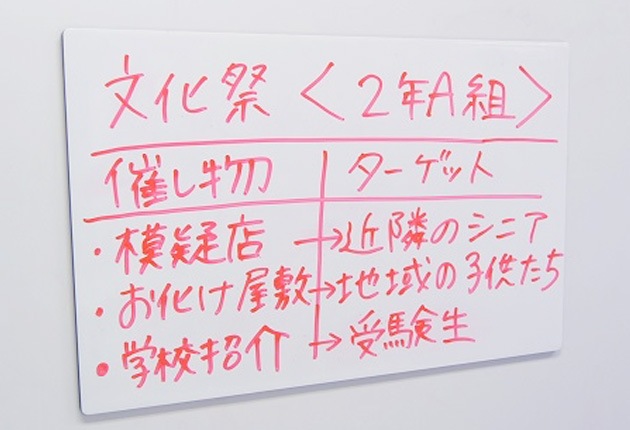 文化祭〈2年A組〉
催し物 ターゲット
・模疑店 →近隣のシニア
・お化け屋敷→地域の子供たち
・学校招介 →受験生